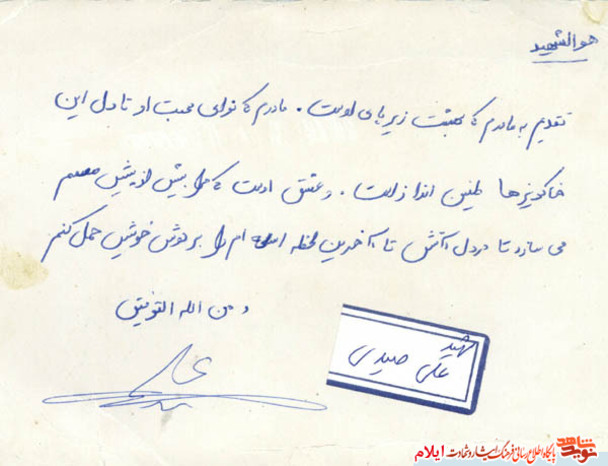 هوالشهید
تقدیم به مادرم که بهشت زیر پای اوست. مادرم که نوای محبت او تا دل این
خاکریزها طنین انداز است. و عشق اوست که مرا بیش از پیش مصمم
می سازد تا در دل آتش تا آخرین لحظه اسلحه ام را بر دوش خویش حمل کنم
و من الله التوفیق
شهید
علی صیدی
نوید شاهد
پایگاه اطلاع رسانی فرهنگ ایثار و شهادت ایلام